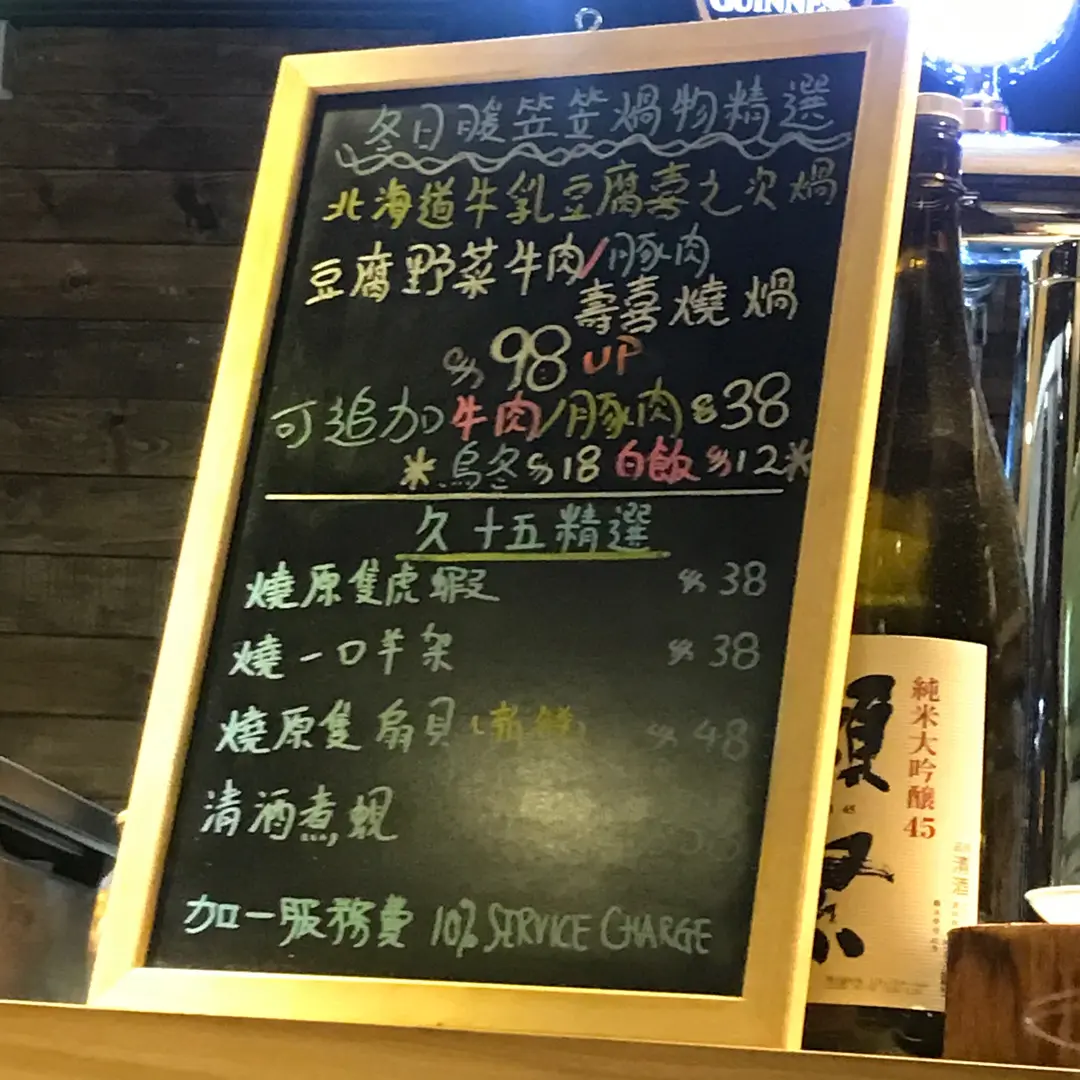 GUINNESS
冬日暖笠笠煱物精選
北海道牛乳豆腐喜之次煱
豆腐野菜牛肉/豚肉
壽喜燒煱
$98 UP
可追加牛肉/豚肉 $38
*烏冬$18 白飯$12*
久十五精選
燒原隻虎蝦 $38
燒一口羊架 $38
燒原隻扇貝(新鮮) $48
清酒煮蜆
加一服務費 10% SERVICE CHARGE
純米大吟醸
45
獺祭
45
清酒